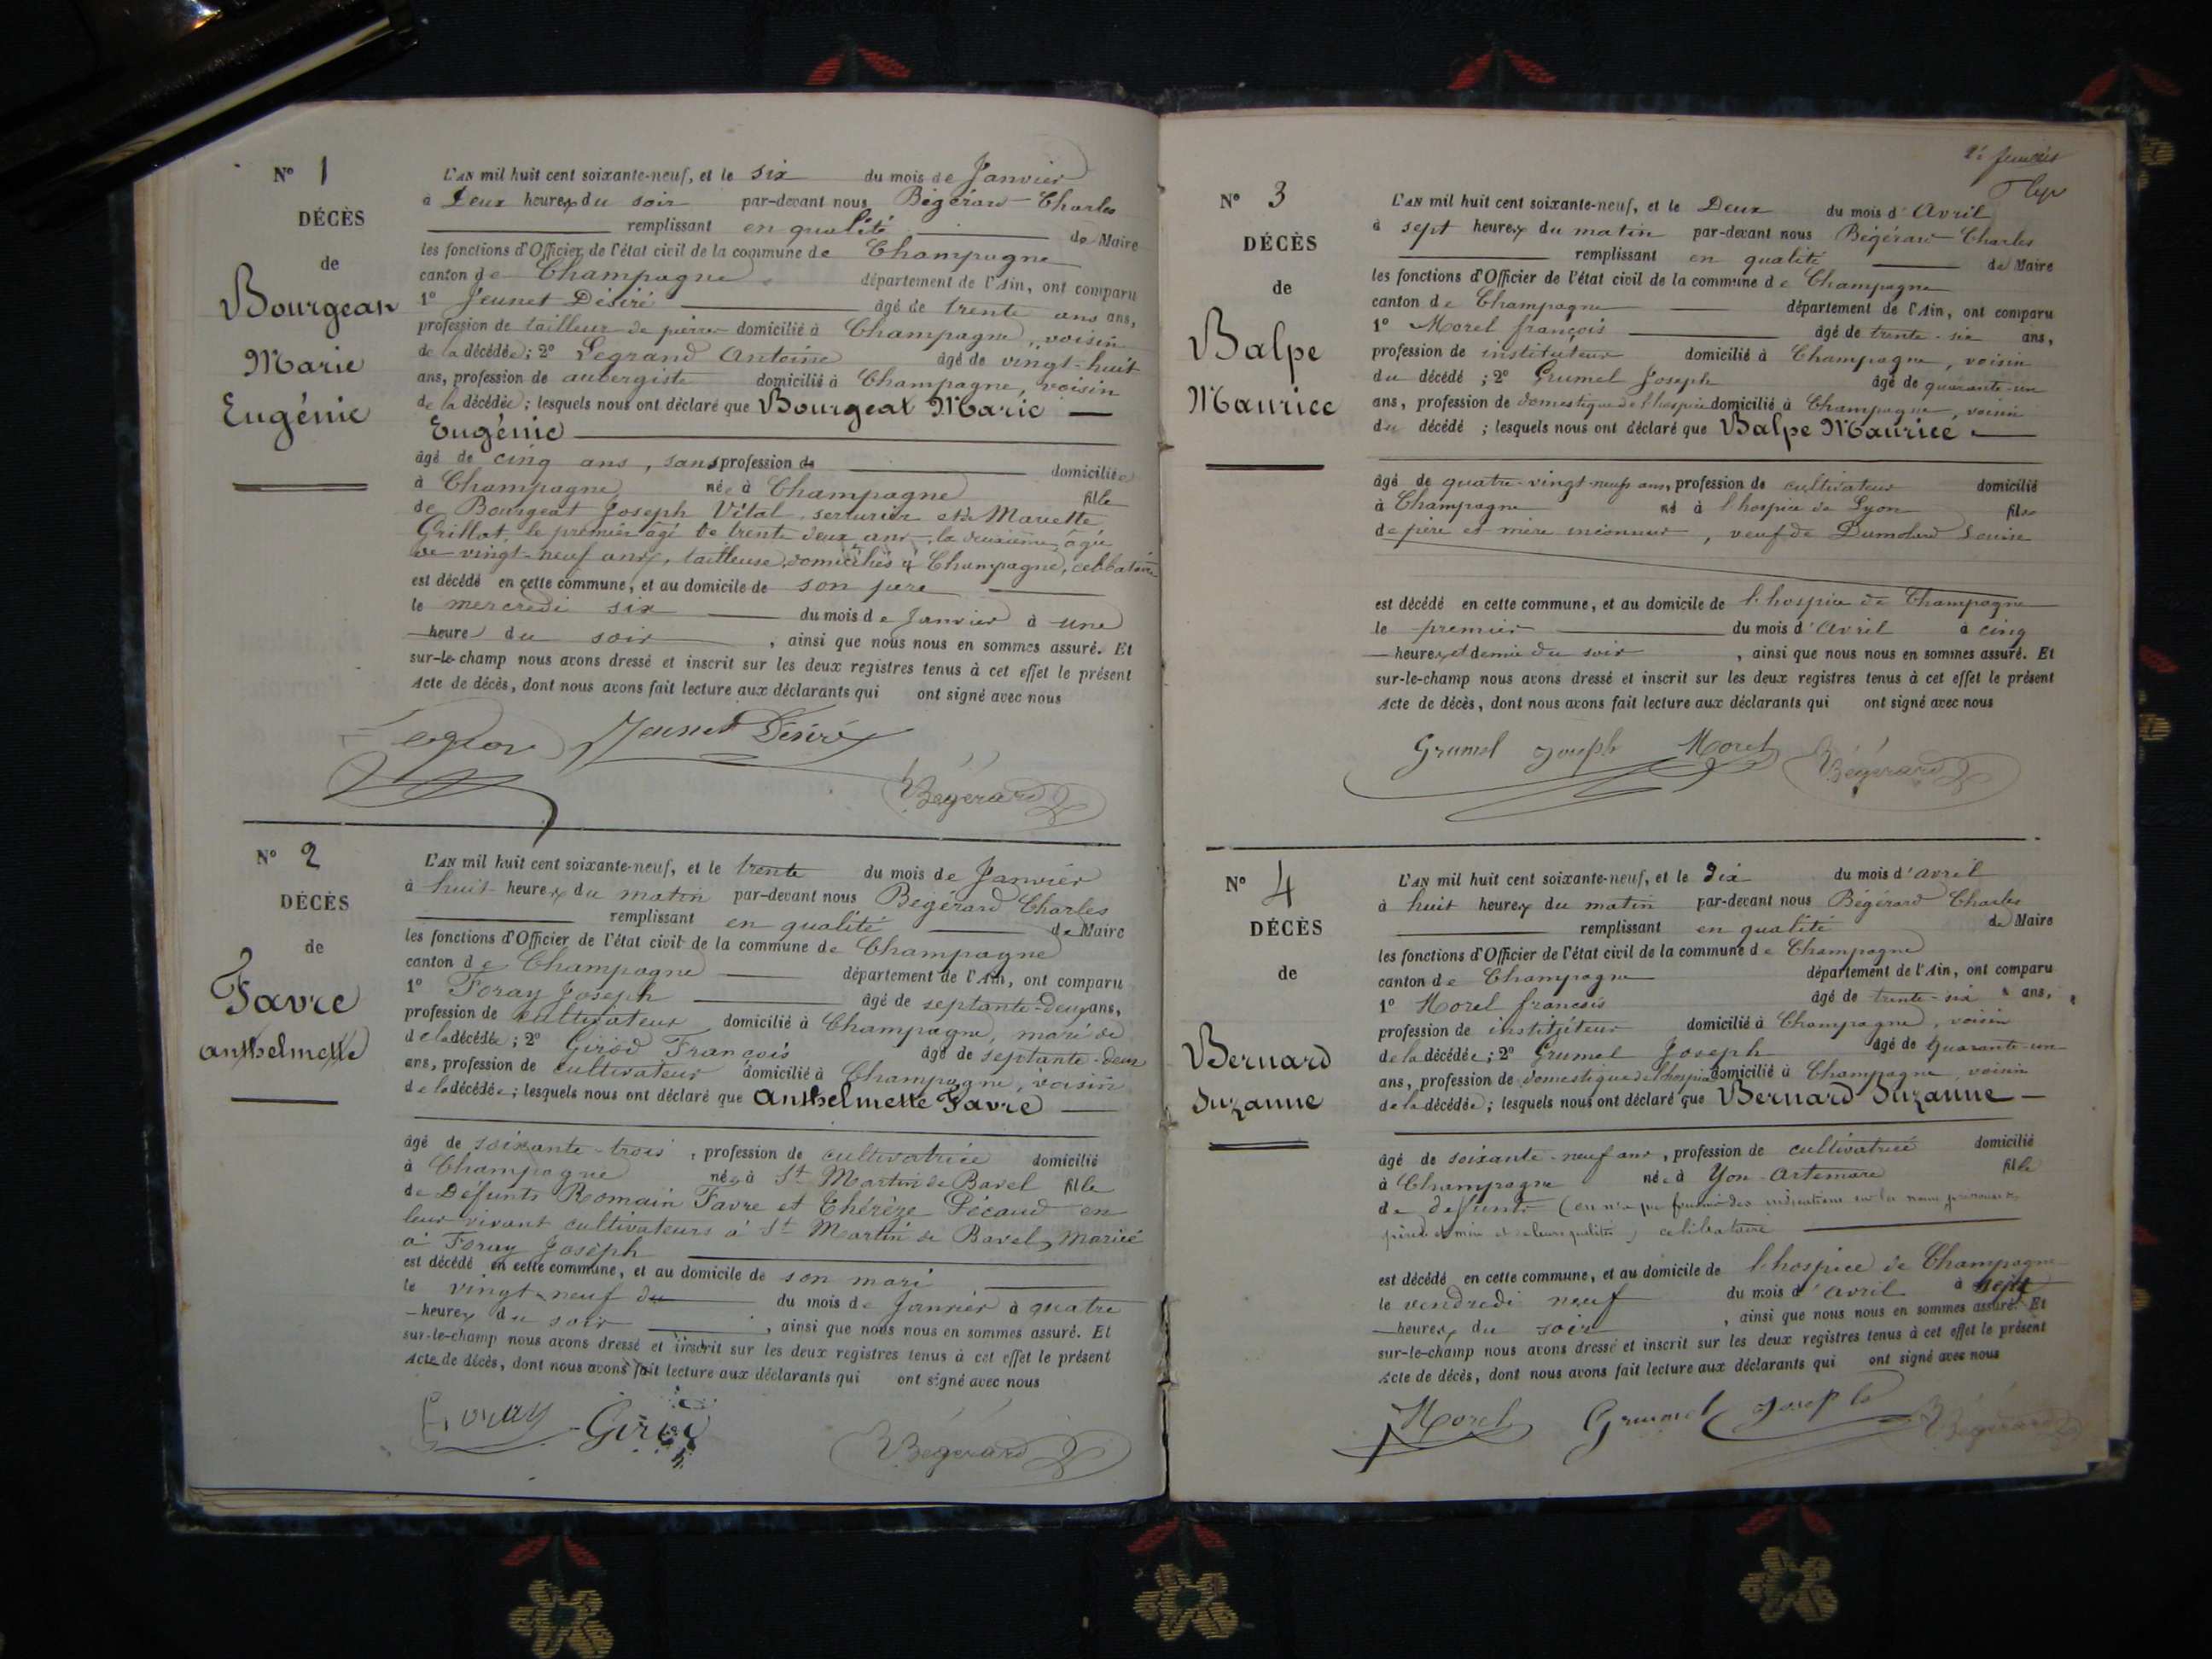 N° 1
DÉCÈS
de
Bourgeat
Marie
Eugénie
L'AN mil huit cent soixante-neuf, et le six du mois de Janvier
à Deux heures du soir par-devant nous Bégérard Charles
remplissant en qualité de Maire
les fonctions d'Officier de l'état civil de la commune de Champagne
canton de Champagne département de l'Ain, ont comparu
1° Jeunet Désiré âgé de trente ans ans,
profession de tailleur de pierre domicilié à Champagne, voisin
de la décédée; 2° Legrand Antoine âgé de vingt-huit
ans, profession de aubergiste domicilié à Champagne, voisin
de la décédée; lesquels nous ont déclaré que Bourgeat Marie
Eugénie
âgé de cinq ans, sans profession de domiciliée
à Champagne née à Champagne fille
de Bourgeat Joseph Vital, serrurier et de Mariette
Grillot, le premier âgé de trente deux ans, la deuxième âgée
de vingt-neuf ans, tailleuse, domiciliés à Champagne, célibataire
est décédé en cette commune, et au domicile de son père
le mercredi six du mois de Janvier à une
heure du soir, ainsi que nous nous en sommes assuré. Et
sur-le-champ nous avons dressé et inscrit sur les deux registres tenus à cet effet le présent
Acte de décès, dont nous avons fait lecture aux déclarants qui ont signé avec nous
Jeunet Désiré
Bégérard
N° 2
DÉCÈS
de
Favre
Anthelmette
L'AN mil huit cent soixante-neuf, et le trente du mois de Janvier
à huit heures du matin par-devant nous Bégérard Charles
remplissant en qualité de Maire
les fonctions d'Officier de l'état civil de la commune de Champagne
canton de Champagne département de l'Ain, ont comparu
1° Foray Joseph âgé de septante-deux ans,
profession de cultivateur domicilié à Champagne, mari de
de la décédée; 2° Girod François âgé de septante-deux
ans, profession de cultivateur domicilié à Champagne, voisin
de la décédée; lesquels nous ont déclaré que Anthelmette Favre
âgé de soixante-trois, profession de cultivatrice domicilié
à Champagne née à St Martin de Bavel fille
de Défunts Romain Favre et Thérèze Pécaud en
leur vivant cultivateurs à St Martin de Bavel, mariée
à Foray Joseph
est décédé en cette commune, et au domicile de son mari
le vingt-neuf du du mois de Janvier à quatre
heures du soir, ainsi que nous nous en sommes assuré. Et
sur-le-champ nous avons dressé et inscrit sur les deux registres tenus à cet effet le présent
Acte de décès, dont nous avons fait lecture aux déclarants qui ont signé avec nous
Foray Girod
Bégérard
N° 3
DÉCÈS
de
Balpe
Maurice
L'AN mil huit cent soixante-neuf, et le Deux du mois d'Avril
à sept heures du matin par-devant nous Bégérard Charles
remplissant en qualité de Maire
les fonctions d'Officier de l'état civil de la commune de Champagne
canton de Champagne département de l'Ain, ont comparu
1° Morel françois âgé de trente-six ans,
profession de instituteur domicilié à Champagne, voisin
du décédé; 2° Grumel Joseph âgé de quarante-un
ans, profession de domestique de l'hospice domicilié à Champagne, voisin
du décédé; lesquels nous ont déclaré que Balpe Maurice
âgé de quatre-vingt-neuf ans, profession de cultivateur domicilié
à Champagne né à l'hospice de Lyon fils
de père et mère inconnus, veuf de Dumolard Louise
est décédé en cette commune, et au domicile de l'hospice de Champagne
le premier du mois d'Avril à cinq
heures et demie du soir, ainsi que nous nous en sommes assuré. Et
sur-le-champ nous avons dressé et inscrit sur les deux registres tenus à cet effet le présent
Acte de décès, dont nous avons fait lecture aux déclarants qui ont signé avec nous
Grumel Joseph Morel Bégérard
N° 4
DÉCÈS
de
Bernard
Suzanne
L'AN mil huit cent soixante-neuf, et le Dix du mois d'avril
à huit heures du matin par-devant nous Bégérard Charles
remplissant en qualité de Maire
les fonctions d'Officier de l'état civil de la commune de Champagne
canton de Champagne département de l'Ain, ont comparu
1° Morel francois âgé de trente-six ans,
profession de instituteur domicilié à Champagne, voisin
de la décédée; 2° Grumel Joseph âgé de quarante-un
ans, profession de domestique de l'hospice domicilié à Champagne, voisin
de la décédée; lesquels nous ont déclaré que Bernard Suzanne
âgé de soixante-neuf ans, profession de cultivatrice domicilié
à Champagne née à Yon-Artemare fille
de defunts (on n'a pu fournir des indications sur les noms, prénoms
père et mère et leurs qualités) célibataire
est décédé en cette commune, et au domicile de l'hospice de Champagne
le vendredi neuf du mois d'avril à sept
heures du soir, ainsi que nous nous en sommes assuré. Et
sur-le-champ nous avons dressé et inscrit sur les deux registres tenus à cet effet le présent
Acte de décès, dont nous avons fait lecture aux déclarants qui ont signé avec nous
Morel Grumel Joseph Bégérard